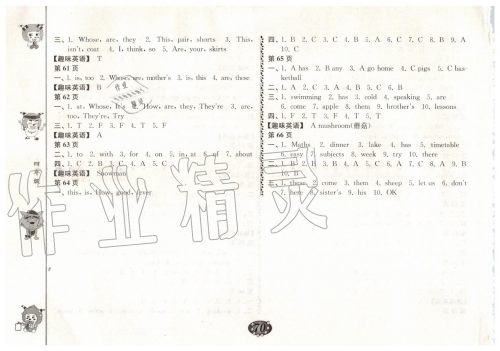 三、1. Whose, are, they 2. This, pair, shorts 3. This,
isn't, coat 4. I, think, so 5. Are, your, skirts
【趣味英语】 T
第 61 页
一、1. is, too 2. Whose, are, mother's 3. is, this 4. are, those
【趣味英语】 B
第 62 页
一、1. at, Whose, It's 2. How, are, they, They're 3. are,
too, They're, Try
三、1. T 2. F 3. F 4. T 5. F
【趣味英语】 A
第 63 页
二、1. to 2. with 3. for 4. on 5. in, at 6. of 7. about
四、1. C 2. B 3. C 4. A 5. C
【趣味英语】 Snowman
第 64 页
一、this, is, How, good, ever
四、1. B 2. C 3. C 4. B 5. A 6. C 7. C 8. B 9. A
10. C
第 65 页
一、1. A has 2. B any 3. A go home 4. C pigs 5. C bas-
ketball
二、1. swimming 2. has 3. cold 4. speaking 5. are
6. come 7. apple 8. them 9. brother's 10. lessons
四、1. F 2. T 3. T 4. F 5. T
【趣味英语】 A mushroom(蘑菇)
第 66 页
一、1. Maths 2. dinner 3. lake 4. has 5. timetable
6. easy 7. subjects 8. week 9. try 10. there
二、1. C 2. B 3. B 4. C 5. A 6. B 7. C 8. A 9. B
10. B
三、1. these 2. come 3. them 4. sheep 5. let us 6. don't
7. here 8. sister's 9. his 10. OK
70
作业精灵